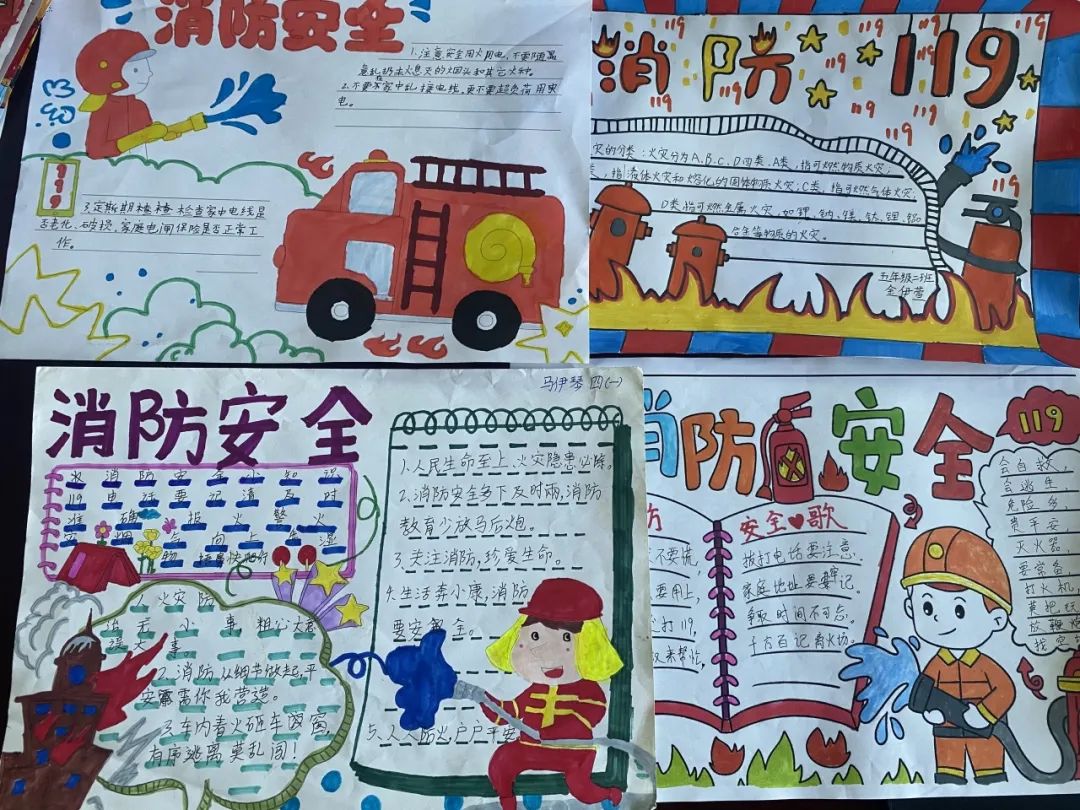 消防安全
1.注意安全用火用电,不要随意
乱扔未熄灭的烟头和其它火种。
2.不要在家中乱接电线,更不要超负荷用
电。
119
3.定斯期检查检查家中电线是
否老化、破损,家庭电闸保险是否正常工
作。
消防119
119
119
119
119
119
119
119
灾的分类:火灾分为A.B.C.D四类.A类,指可燃物质火灾;
类,指液体火灾和熔化的固体物质火灾;C类指可燃气体火灾;
D类指可燃金属火灾,如钾,钠,镁,钛,锂,铝
合金等物质的火灾。
五年级二班
金伊萱
马伊琴 四(一)
消防安全
火消防安全小知识
119电话要记清及时
准确报火警火
1.火灾防
治无小事,粗心大意
误大事。
2.消防从细节做起,平
安需你我营造。
3.车内着火砸车窗,
有序逃离莫乱闯!
1.人民生命至上,火灾隐患必除。
2.消防安全多下及时雨,消防
教育少放马后炮。
3.关注消防,珍爱生命。
4.生活奔小康,消防
要安全。
5.人人防火户户平安
消防安全
119
防
不要慌,
要用上,
打119,
来帮忙,
安全歌
拨打电话要注意.
家庭地址要牢记.
争取时间不可怠.
千方百记离火场.
会自救,
会逃生
危险多,
贵平安
灭火器,
要常备
打火机,
莫把玩
放鞭炮
找空